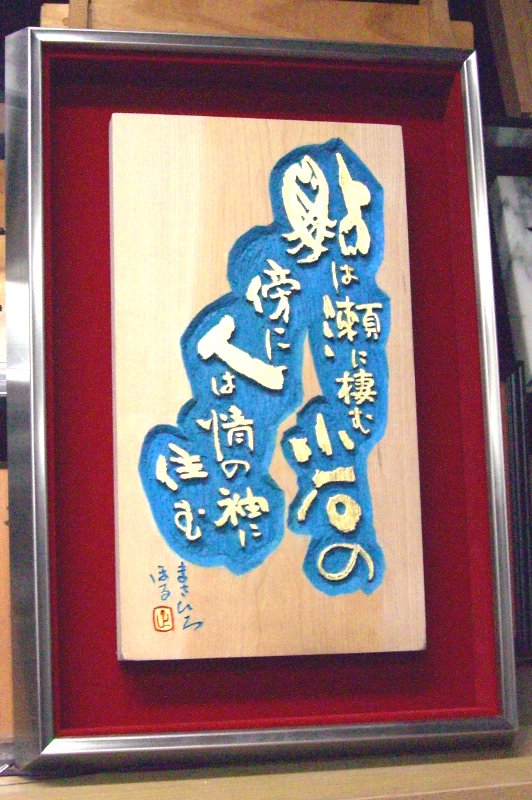 鮎は瀬に棲む小石の
傍に
人は情の袖に
住む
まさひろ
ほる